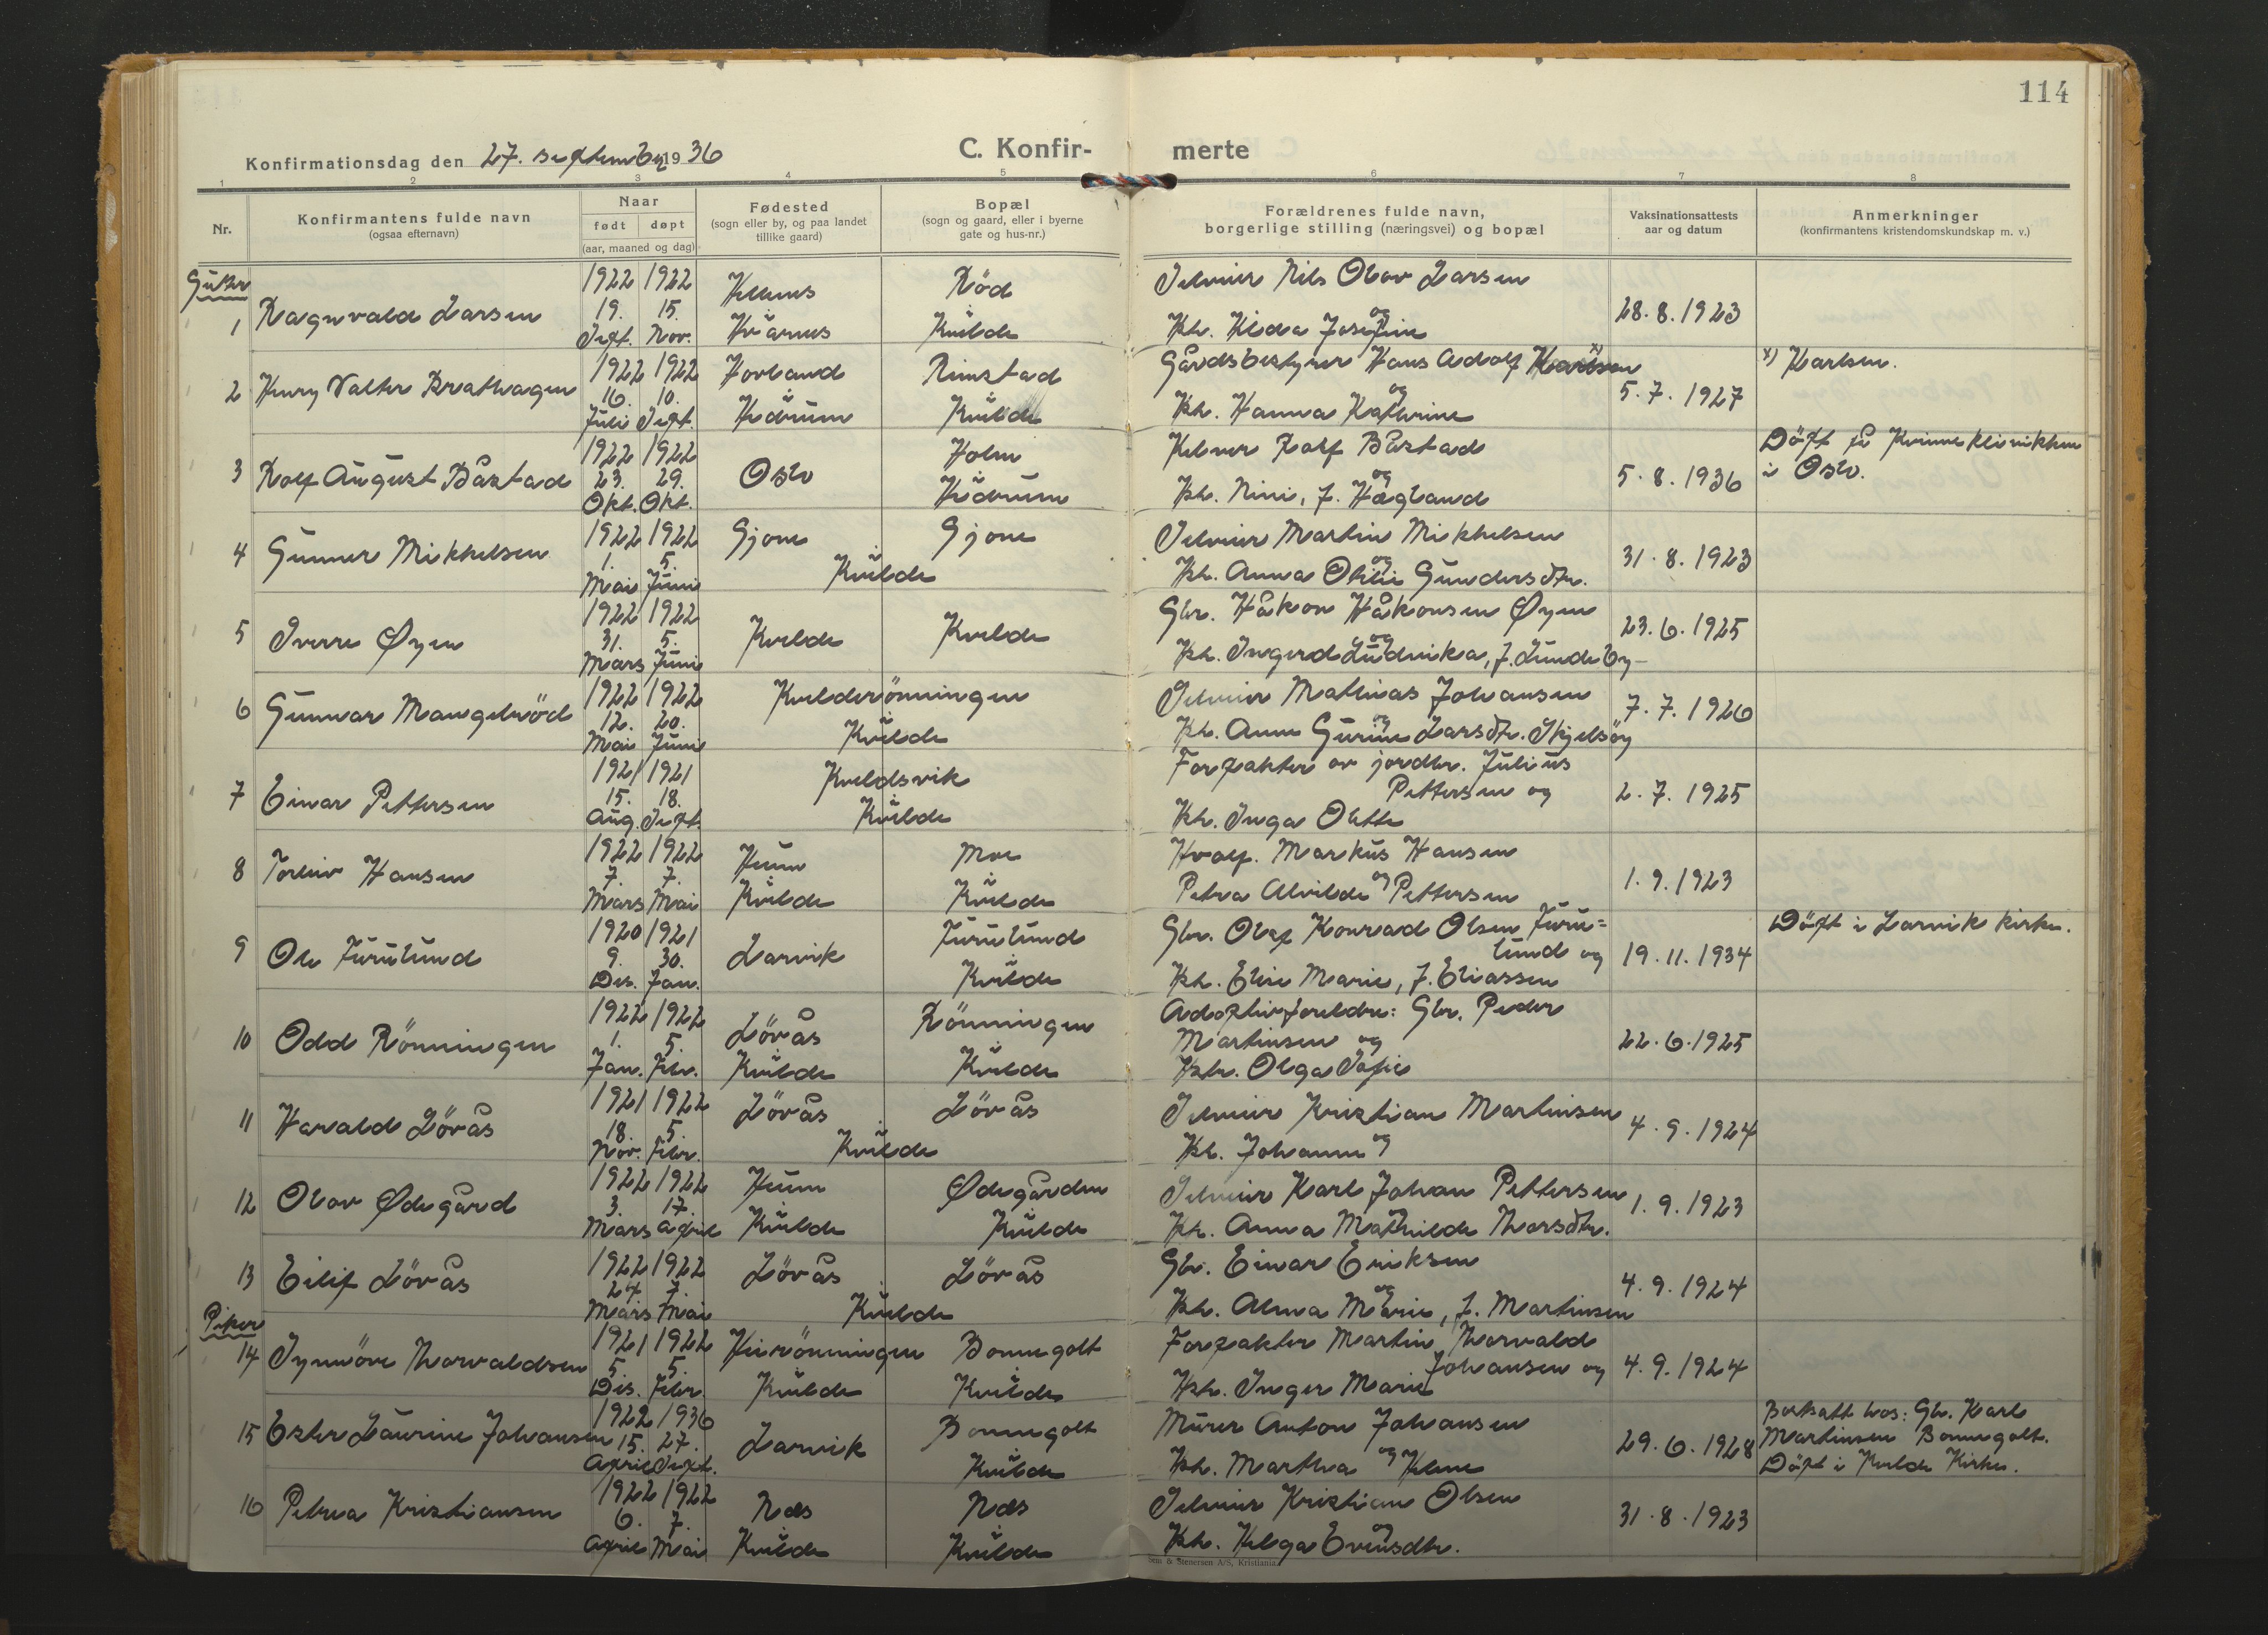 114
Konfirmationsdag den 27. september 1936
C. Konfir- merte
1 2 3 4 5 6 7 8
Nr.
Konfirmantens fulde navn
(ogsaa efternavn)
Naar
født døpt
(aar, maaned og dag)
Fødested
(sogn eller by, og paa landet
tillike gaard)
Bopæl
(sogn og gaard, eller i byerne
gate og hus-nr.)
Forældrenes fulde navn,
borgerlige stilling (næringsvei) og bopæl
Vaksinationsattests
aar og datum
Anmerkninger
(konfirmantens kristendomskundskap m. v.)
Gutter
1 Ragnvald Larsen
1922 19. Sept.
1922 15. Nov.
Rød
i
Kvelde
Selveier Nils Olav Larsen
og
Josefine
28.8.1923
2 Henry Valter Brathagen
1922 16. Juli
1922 10. Sept.
Hovland
i
Hedrum
Rimstad
i
Kvelde
Gårdsbestyrer Hans Adolf Karlsen x)
og
Kh. Hanna Kathrine
5.7.1927
x) Karlsen.
3 Rolf August Båstad
1922 23. Okt.
1922 29. Okt.
Oslo
Holm
i
Hedrum
Kelner Rolf Båstad
og
Kh. Nini, f. Høgland
5.8.1936
Döpt på Kvinneklinikken
i Oslo.
4 Gunner Mikkelsen
1922 1. Mai
1922 5. Juni
Gjone Gjone
i
Kvelde
Selveier Martin Mikkelsen
og
Kh. Anna Otilie Gundersdtr.
31.8.1923
5 Sverre Øyen
1922 31. Mars
1922 5. Juni
Kvelde
Kvelde
Gbr. Håkon Håkonsen Øyen
og
Kh. Ingerd Ludvika, f. Lundeby
23.6.1925
6 Gunnar Mangelröd
1922 12. Mai
1922 20. Juni
Kvelderönningen
i
Kvelde
Selveier Mathias Johansen
og
Kh. Anne Gurine Larsdtr. Skjelsöy
7.7.1926
7 Einar Pettersen
1921 15. Aug.
1921 18. Sept.
Kveldsvik
i
Kvelde
Forpakter av jordbr. Julius
Pettersen og
Kh. Inga Olette
2.7.1925
8 Torleiv Hansen
1922 7. Mars
1922 7. Mai
Heum
i
Kvelde
Moe
i
Kvelde
Markus Hansen
og
Petra Alvilde Pettersen
1.9.1923
9 Ole Furulund
1920 9. Des.
1921 30. Jan.
Larvik
Furulund
i
Kvelde
Gbr. Olaf Konrad Olsen Furu=
lund og
Kh. Elise Marie, f. Eliassen
19.11.1934
Döpt i Larvik kirke.
10 Odd Rönningen
1922 1. Jan.
1922 5. Febr.
Lövås
i
Kvelde
Rönningen
i
Kvelde
Adoptivforeldre: Gbr. Peder
Martinsen og
Kh. Olga Sofie
22.6.1925
11 Harald Lövås
1921 18. Nov.
1922 5. Febr.
Lövås Lövås
i
Kvelde
Selveier Kristian Martinsen
og
Kh. Johanne
4.9.1924
12 Olav Ødegård
1922 3. Mars
1922 17. April
Heum
i
Kvelde
Ødegården
i
Kvelde
Selveier Karl Johan Pettersen
og
Kh. Anna Mathilde Thorsdtr.
1.9.1923
13 Eilif Lövås
1922 24 Mars
1922 7. Mai
Lövås Lövås
i
Kvelde
Gbr. Einar Eriksen
og
Kh. Alma Marie, f. Martinsen
4.9.1924
Piker
14 Synnöve Thorvaldsen
1921 5. Des.
1922 5. Febr.
i
Kvelde
Bommgolt
i
Kvelde
Forpakter Martin Thorvald
Johansen og
Kh. Inger Marie
4.9.1924
15 Ester Laurine Johansen
1922 15. April
1936 27. Sept.
Larvik
Bommgolt
i
Kvelde
Murer Anton Johansen
og
Kh. Martha Helene
29.6.1928
Bortsatt hos: Gbr. Karl
Martinsen Bommgolt.
Döpt i Kvelde Kirke.
16 Petra Kristiansen
1922 6. April
1922 7. Mai
Næs
i
Kvelde
Næs
i
Kvelde
Selveier Kristian Olsen
og
Kh. Helga Evensdtr.
31.8.1923
& Stenersen A/S, Kristiania